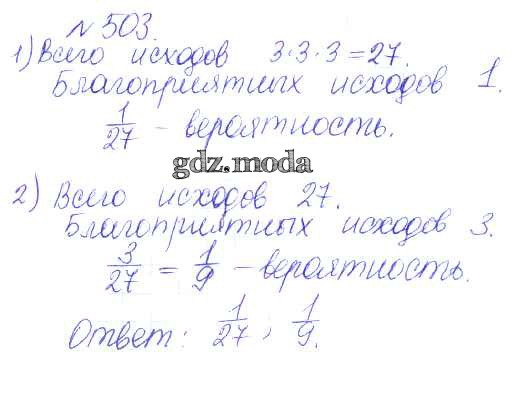 № 503.
1) Всего исходов 3·3·3=27.
Благоприятных исходов 1.
1/27 - вероятность.
gdz.moda
2) Всего исходов 27.
Благоприятных исходов 3.
3/27 = 1/9 - вероятность.
Ответ: 1/27; 1/9.